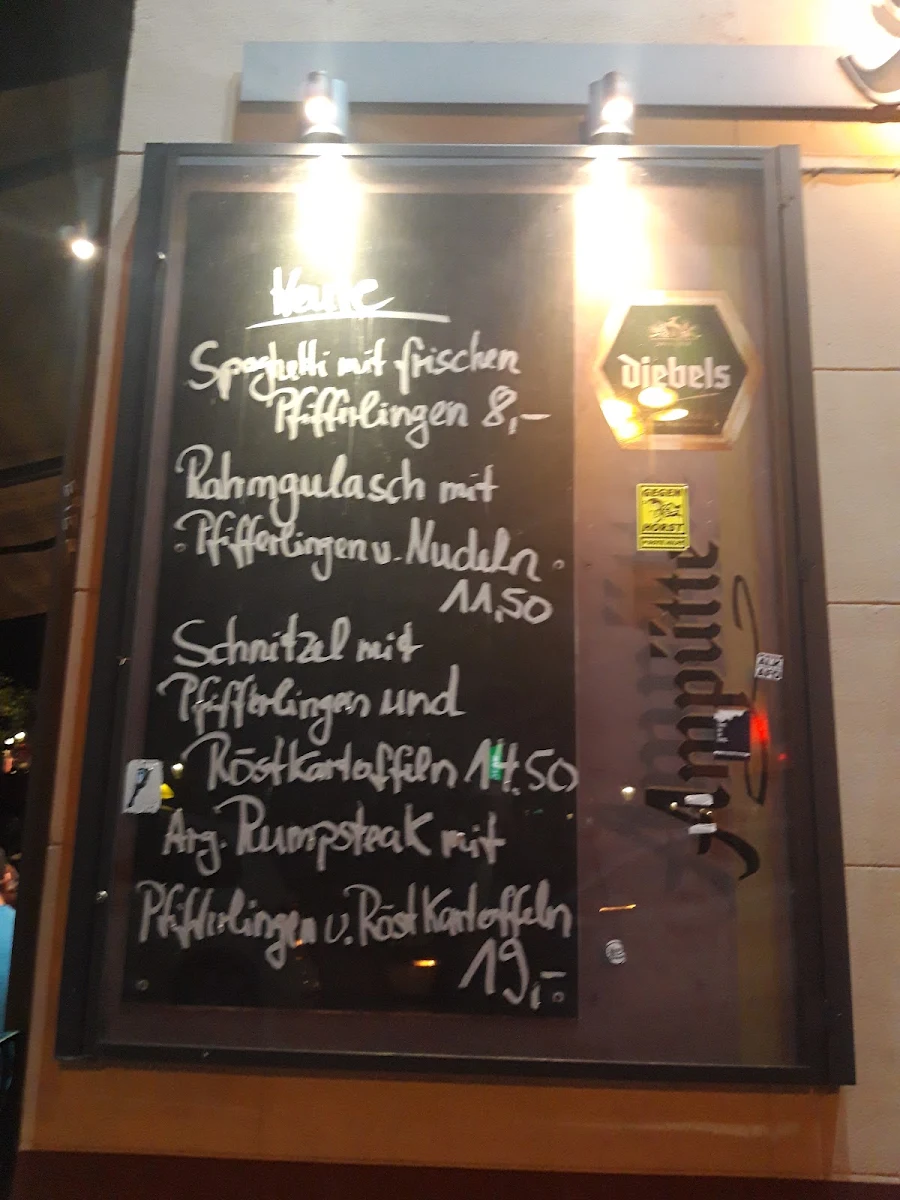 Heute
Spaghetti mit frischen
Pfifferlingen 8,-
Rahmgulasch mit
Pfifferlingen u. Nudeln
11,50
Schnitzel mit
Pfifferlingen und
Röstkartoffeln 14.50
Arg. Rumpsteak mit
Pfifferlingen u. Röstkartoffeln
19,-
diebels
GEGEN
HORST
Ampütte